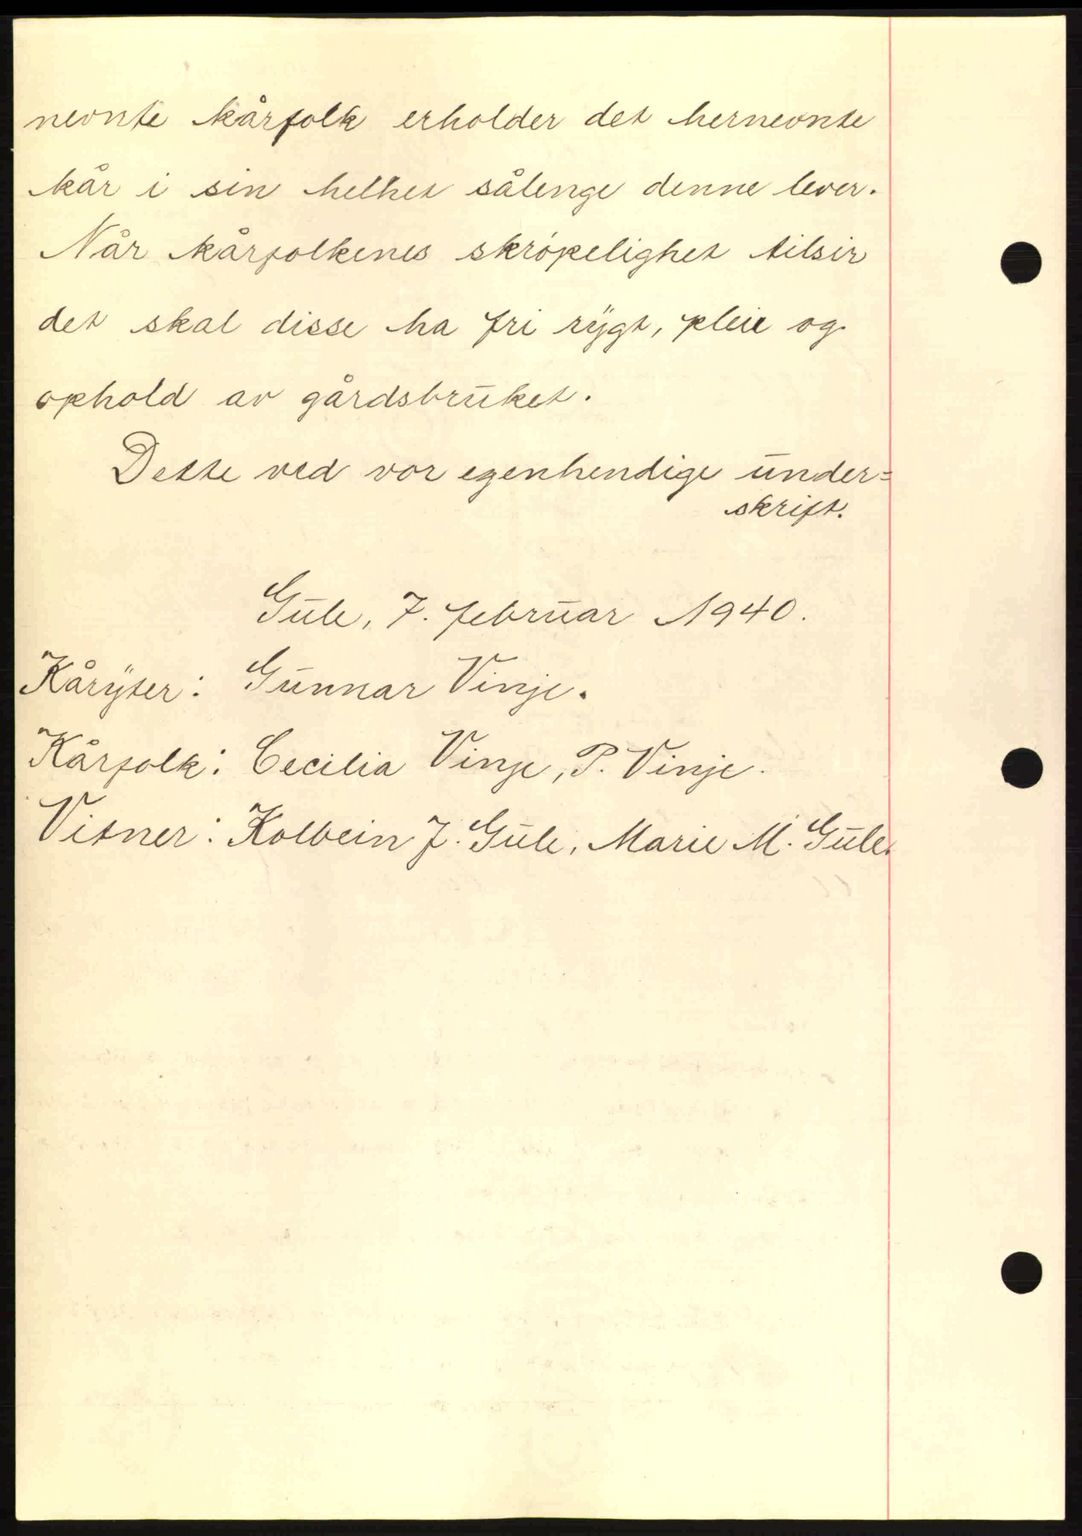 nevnte kårfolk erholder det hernevnte
kår i sin helhet sålenge denne lever.
Når kårfolkenes skröpelighet tilsir
det skal disse ha fri rygt, pleie og
ophold av gårdsbruket.
Dette ved vor egenhendige under=
skrift.
Gule, 7. februar 1940.
Kåryter: Gunnar Vinje.
Kårfolk: Cecilia Vinje, P. Vinje.
Vitner: Kolbein J. Gule, Marie M. Gule.